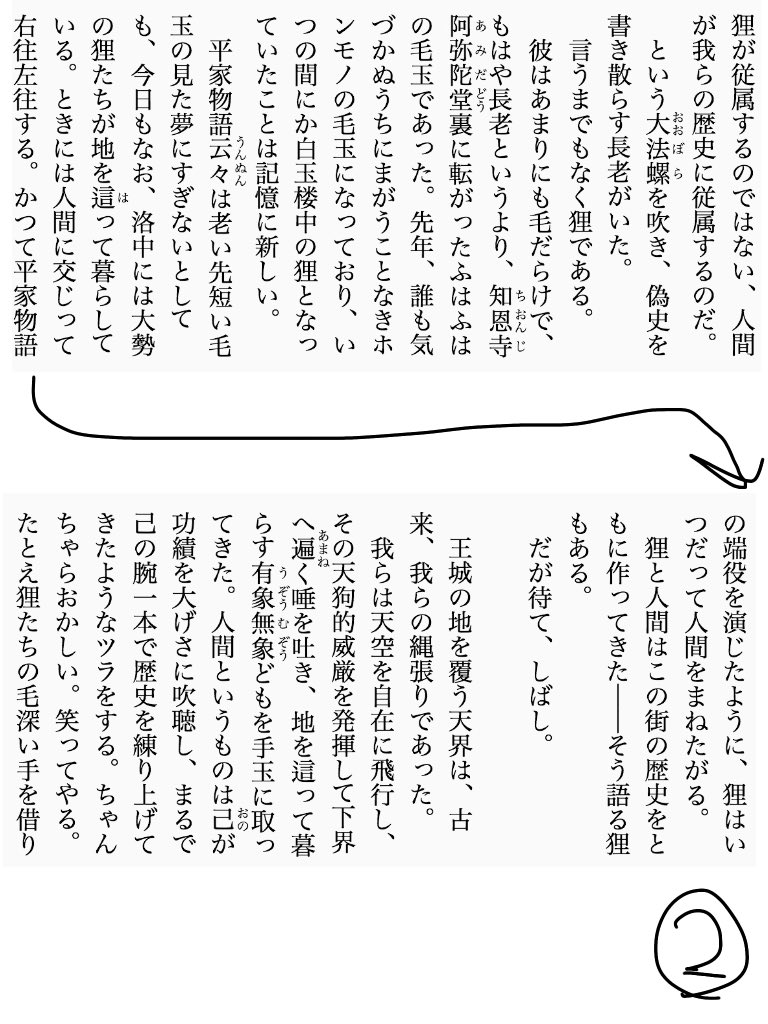 狸が従属するのではない、人間
が我らの歴史に従属するのだ。
という大法螺を吹き、偽史を
書き散らす長老がいた。
言うまでもなく狸である。
彼はあまりにも毛だらけで、
もはや長老というより、知恩寺
阿弥陀堂裏に転がったふはふは
の毛玉であった。先年、誰も気
づかぬうちにまがうことなきホ
ンモノの毛玉になっており、い
つの間にか白玉楼中の狸となっ
ていたことは記憶に新しい。
平家物語云々は老い先短い毛
玉の見た夢にすぎないとして
も、今日もなお、洛中には大勢
の狸たちが地を這って暮らして
いる。ときには人間に交じって
右往左往する。かつて平家物語
の端役を演じたように、狸はい
つだって人間をまねたがる。
狸と人間はこの街の歴史をと
もに作ってきた――そう語る狸
もある。
だが待て、しばし。
王城の地を覆う天界は、古
来、我らの縄張りであった。
我らは天空を自在に飛行し、
その天狗的威厳を発揮して下界
へ遍く唾を吐き、地を這って暮
らす有象無象どもを手玉に取っ
てきた。人間というものは己が
功績を大げさに吹聴し、まるで
己の腕一本で歴史を練り上げて
きたようなツラをする。ちゃん
ちゃらおかしい。笑ってやる。
たとえ狸たちの毛深い手を借り
2